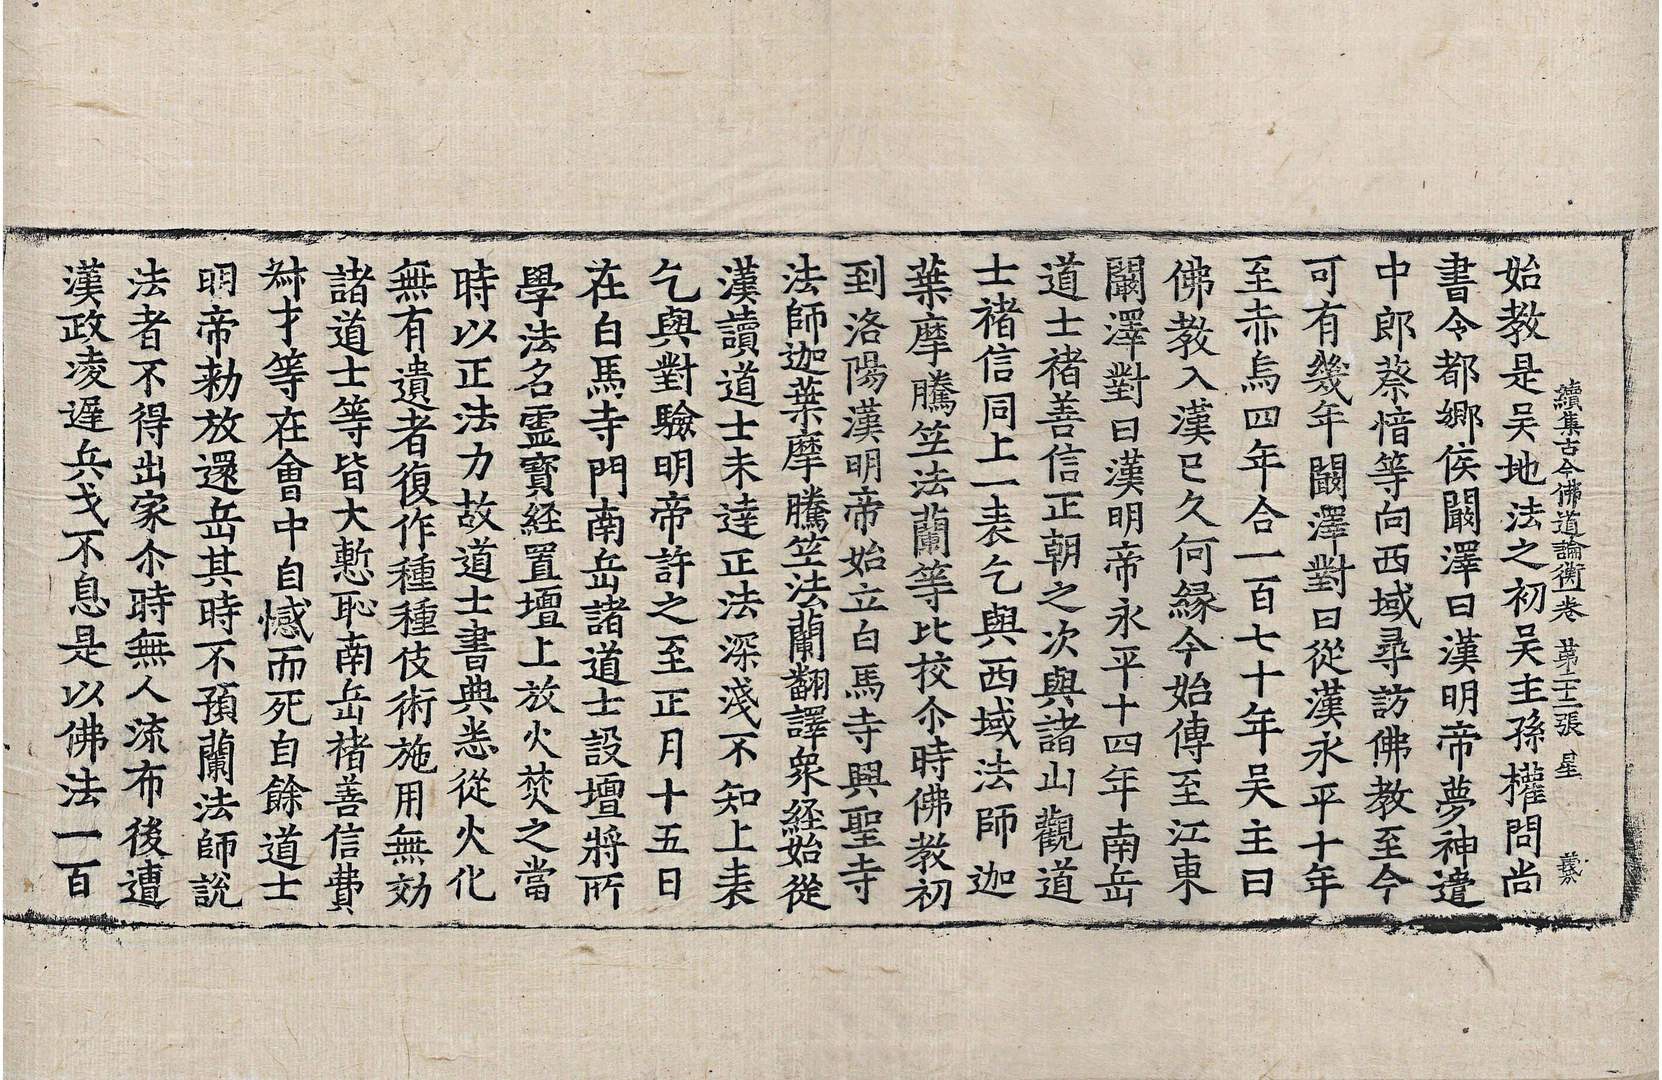 續集古今佛道論衡一卷 第二十二張 星
始教是吴地法之初吴主孫權問尚
書令都郷侯闞澤曰漢明帝夢神遣
中郎蔡愔等向西域尋訪佛教至今
可有幾年闞澤對曰從漢永平十年
至赤烏四年合一百七十年吴主曰
佛教入漢已久何縁今始傳至江東
闞澤對曰漢明帝永平十四年南岳
道士禇善信正朝之次與諸山觀道
士禇信同上一表乞與西域法師迦
葉摩騰竺法蘭等比校尒時佛教初
到洛陽漢明帝始立白馬寺興聖寺
法師迦葉摩騰竺法蘭翻譯衆経始從
漢讀道士未達正法深淺不知上表
乞與對驗明帝許之至正月十五日
在白馬寺門南岳諸道士設壇將所
學法名靈寳経置壇上放火焚之當
時以正法力故道士書典悉從火化
無有遺者復作種種伎術施用無効
諸道士等皆大慙恥南岳禇善信費
叔才等在會中自憾而死自餘道士
明帝勑放還岳其時不預蘭法師說
法者不得出家尒時無人流布後遭
漢政凌遲兵戈不息是以佛法一百